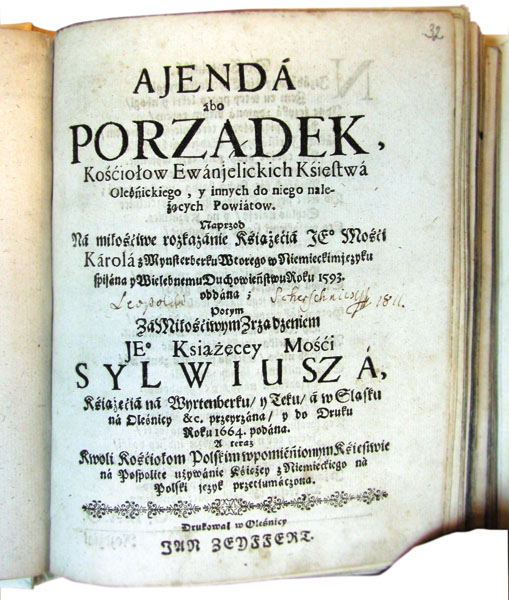 32
AJENDÁ
ábo
PORZĄDEK,
Kośćiołow Ewánjelickich Kśiestwá
Oleśnickiego, y innych do niego nale-
żących Powiátow.
Naprzod
Ná miłośćiwe rozkazánie Książećiá JEº Mośći
Károlá z Mynsterberku Wtorego w Niemieckim języku
spisána y Wielebnemu Duchowieństwu Roku 1593.
oddána;
Leopold Scherschnick 1811.
Potym
Zá Miłośćiwym Zrządzeniem
JEº Książęcey Mośći
SYLWIUSZÁ,
Książećiá ná Wyrtenberku/ y Teku/ á w Sląsku
ná Oleśnicy &c. przeyrzána/ y do Druku
Roku 1664. podána.
A teraz
Kwoli Kośćiołom Polskim w pomięnionym Kśięstwie
ná Pospolite używánie Kśiężey z Niemieckiego ná
Polski język przetłumáczona.
Drukował w Oleśnicy
JAN ZEYFFERT.